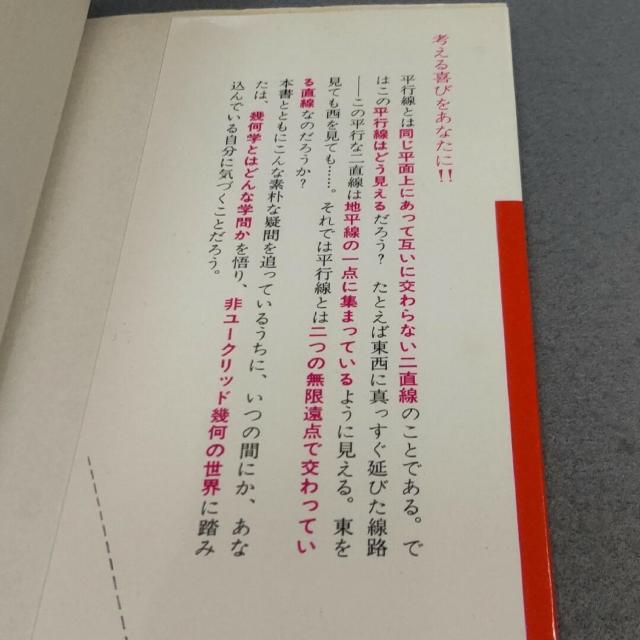 考える喜びをあなたに!!
平行線とは同じ平面上にあって互いに交わらない二直線のことである。で
はこの平行線はどう見えるだろう？　たとえば東西に真っすぐ延びた線路
――この平行な二直線は地平線の一点に集まっているように見える。東を
見ても西を見ても……。それでは平行線とは二つの無限遠点で交わってい
る直線なのだろうか？
本書とともにこんな素朴な疑問を追っているうちに、いつの間にか、あな
たは、幾何学とはどんな学問かを悟り、非ユークリッド幾何の世界に踏み
込んでいる自分に気づくことだろう。